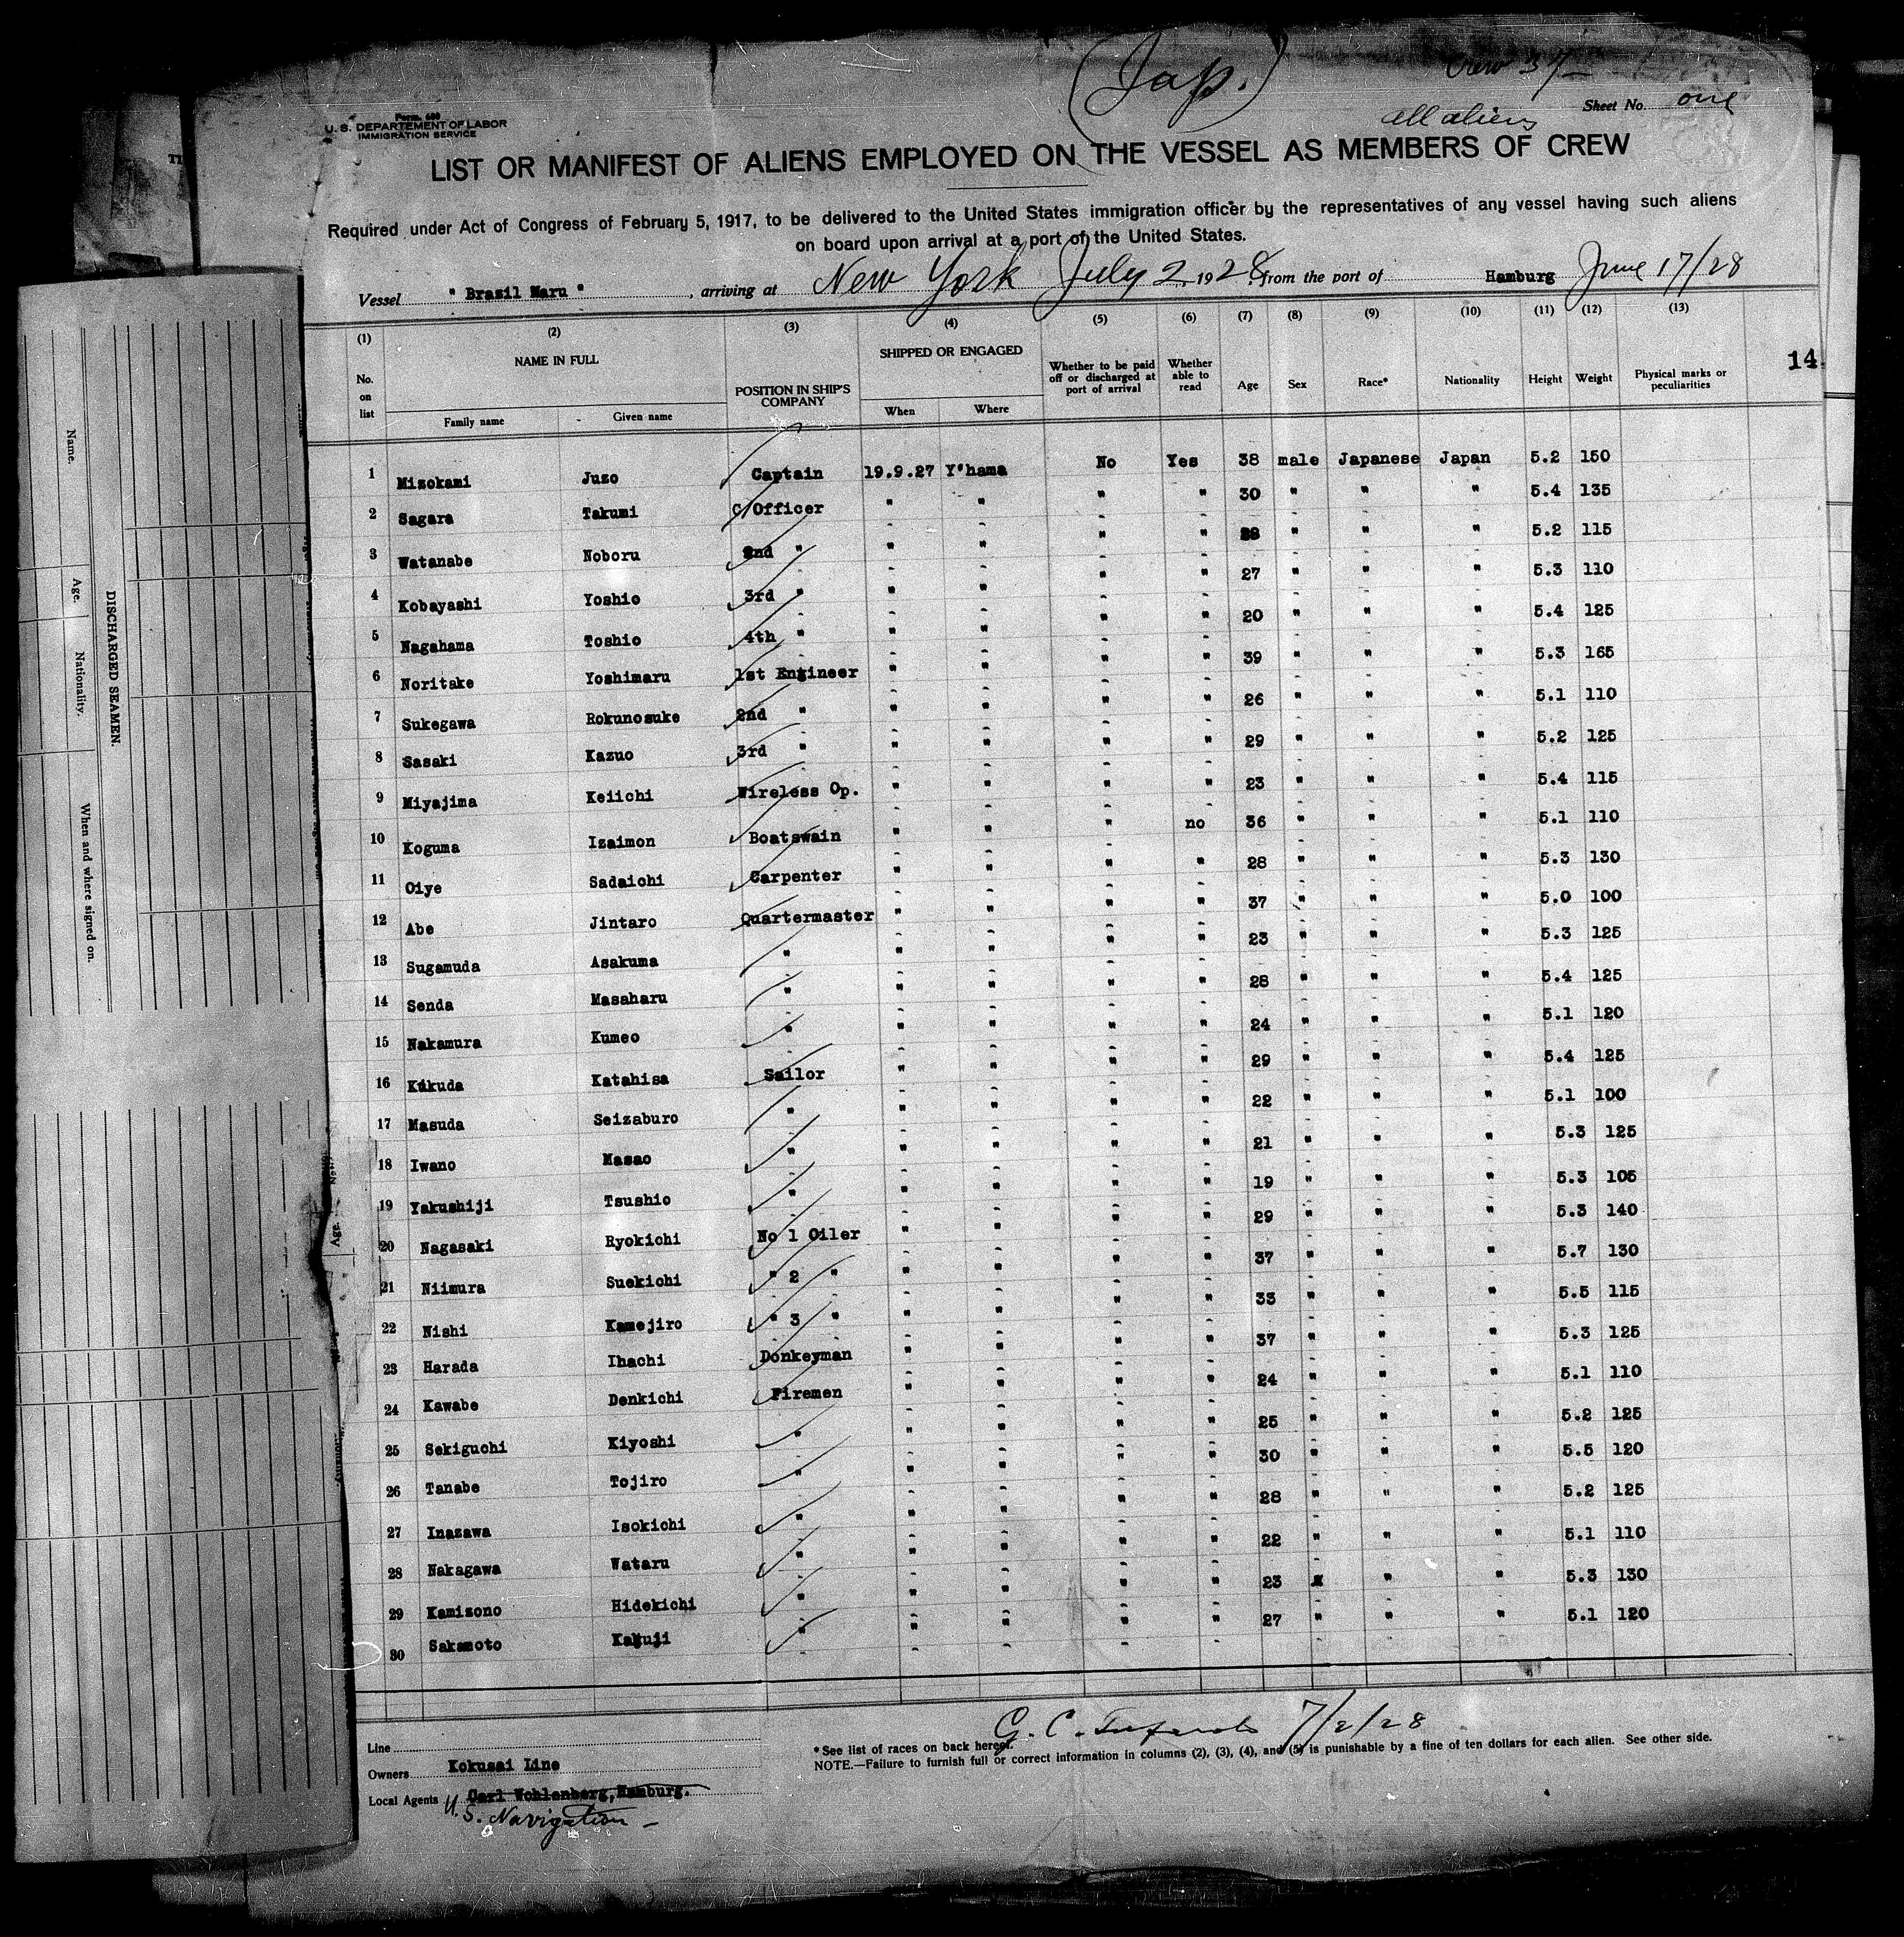 (Jap.)
Crew 37
all aliens
Sheet No. one
Form 680
U. S. DEPARTEMENT OF LABOR
IMMIGRATION SERVICE
LIST OR MANIFEST OF ALIENS EMPLOYED ON THE VESSEL AS MEMBERS OF CREW
Required under Act of Congress of February 5, 1917, to be delivered to the United States immigration officer by the representatives of any vessel having such aliens
on board upon arrival at a port of the United States.
Vessel " Brasil Maru ", arriving at New York July 2, 1928, from the port of Hamburg June 17/28
(1) (2) (3) (4) (5) (6) (7) (8) (9) (10) (11) (12) (13)
No. on list NAME IN FULL Family name Given name POSITION IN SHIP'S COMPANY SHIPPED OR ENGAGED When Where Whether to be paid off or discharged at port of arrival Whether able to read Age Sex Race* Nationality Height Weight Physical marks or peculiarities
14
1 Mizokami Juzo Captain 19.9.27 Y'hama No Yes 38 male Japanese Japan 5.2 150
2 Sagara Takumi C/Officer " " " " 30 " " " 5.4 135
3 Watanabe Noboru 2nd " " " " " " " " 5.2 115
4 Kobayashi Yoshio 3rd " " " " " 27 " " " 5.3 110
5 Nagahama Toshio 4th " " " " " 20 " " " 5.4 125
6 Noritake Yoshimaru 1st Engineer " " " " 39 " " " 5.3 165
7 Sukegawa Rokunosuke 2nd " " " " " 26 " " " 5.1 110
8 Sasaki Kazuo 3rd " " " " " 29 " " " 5.2 125
9 Miyajima Keiichi Wireless Op. " " " " 23 " " " 5.4 115
10 Koguma Izaimon Boatswain " " " no 36 " " " 5.1 110
11 Oiye Sadaichi Carpenter " " " " 28 " " " 5.3 130
12 Abe Jintaro Quartermaster " " " " 37 " " " 5.0 100
13 Sugamuda Asakuma " " " " " 23 " " " 5.3 125
14 Senda Masaharu " " " " " 28 " " " 5.4 125
15 Nakamura Kumeo " " " " " 24 " " " 5.1 120
16 Kukuda Katahisa Sailor " " " " 29 " " " 5.4 125
17 Masuda Seizaburo " " " " " 22 " " " 5.1 100
18 Iwano Masao " " " " " 21 " " " 5.3 125
19 Yakushiji Tsushio " " " " " 19 " " " 5.3 105
20 Nagasaki Ryokichi No 1 Oiler " " " " 29 " " " 5.3 140
21 Niimura Suekichi " 2 " " " " " 37 " " " 5.7 130
22 Nishi Kamejiro " 3 " " " " " 33 " " " 5.5 115
23 Harada Ihachi Donkeyman " " " " 37 " " " 5.3 125
24 Kawabe Denkichi Firemen " " " " 24 " " " 5.1 110
25 Sekiguchi Kiyoshi " " " " " 25 " " " 5.2 125
26 Tanabe Tojiro " " " " " 30 " " " 5.5 120
27 Inazawa Isokichi " " " " " 28 " " " 5.2 125
28 Nakagawa Wataru " " " " " 22 " " " 5.1 110
29 Kamizono Hidekichi " " " " " 23 " " " 5.3 130
30 Sakamoto Kakuji " " " " " 27 " " " 5.1 120
G. C. 7/2/28
Line
Owners Kokusai Line
Local Agents Carl Wohlenberg, Hamburg.
U.S. Navigation
* See list of races on back hereof.
NOTE.—Failure to furnish full or correct information in columns (2), (3), (4), and (5) is punishable by a fine of ten dollars for each alien. See other side.
DISCHARGED SEAMEN.
Name. Age. Nationality. When and where signed on.
Age.